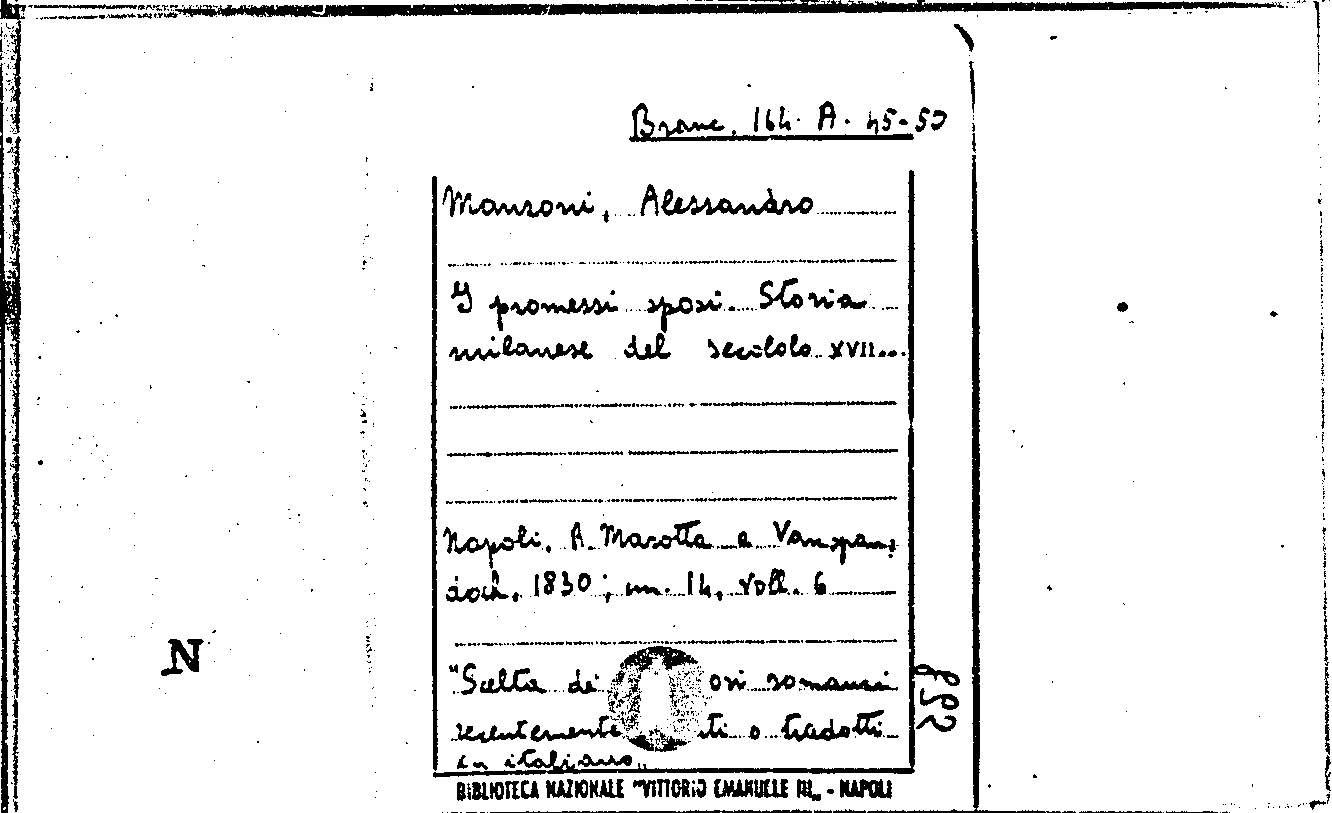 Branc. 164. A. 45-50
Manzoni, Alessandro
I promessi sposi. Storia
milanese del secolo XVII...
Napoli, A. Marotta e Vanspan,
doch, 1830; in. 14, voll. 6
"Scelta dei ori romanzi
recentemente ti o tradotti
in italiano„
N
BIBLIOTECA NAZIONALE "VITTORIO EMANUELE III„ - NAPOLI